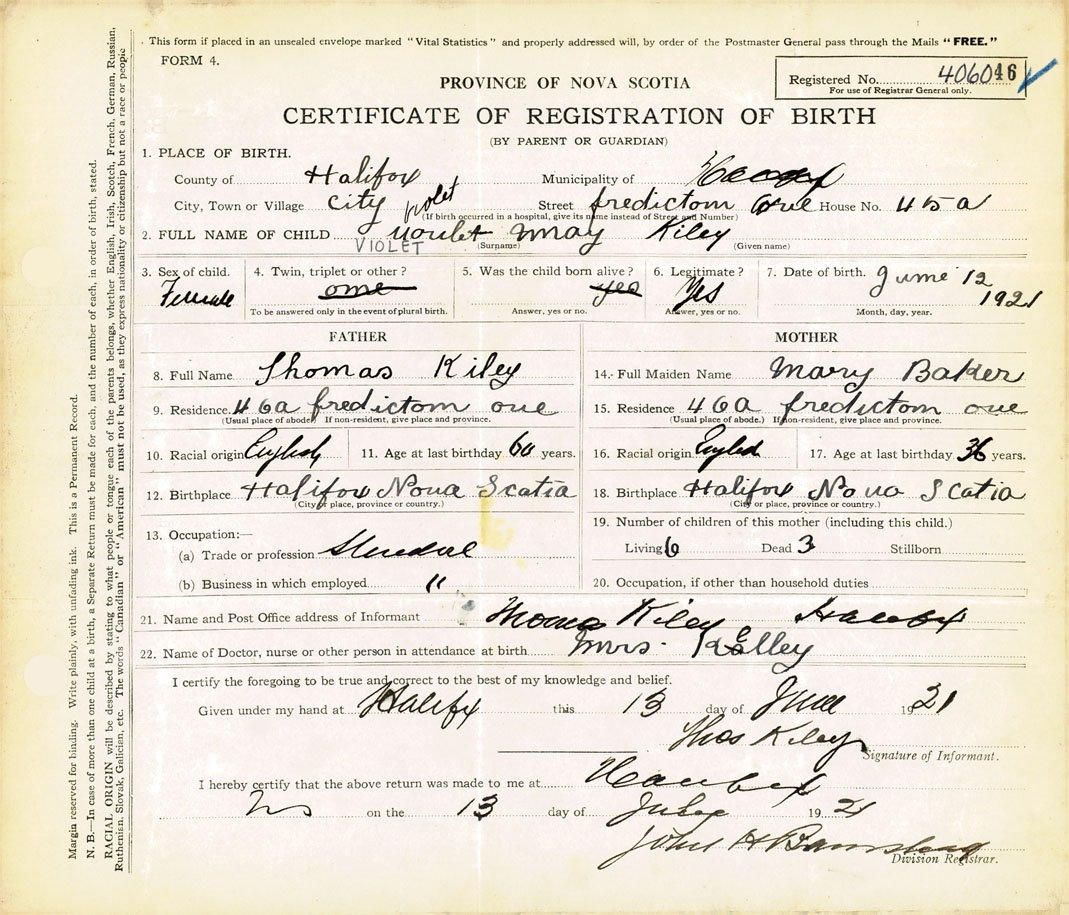 This form if placed in an unsealed envelope marked "Vital Statistics" and properly addressed will, by order of the Postmaster General pass through the Mails "FREE."
FORM 4.
Registered No. 4060 46
For use of Registrar General only.
PROVINCE OF NOVA SCOTIA
CERTIFICATE OF REGISTRATION OF BIRTH
(BY PARENT OR GUARDIAN)
1. PLACE OF BIRTH.
County of Halifox Municipality of
City, Town or Village City Street fredictom House No. 45a
violet (If birth occurred in a hospital, give its name instead of Street and Number)
2. FULL NAME OF CHILD may Kiley
VIOLET (Surname) (Given name)
3. Sex of child. 4. Twin, triplet or other? 5. Was the child born alive? 6. Legitimate? 7. Date of birth. June 12
Female ome yes Yes 1921
To be answered only in the event of plural birth. Answer, yes or no. Answer, yes or no. Month, day, year.
FATHER MOTHER
8. Full Name Thomas Kiley 14. Full Maiden Name Mary Baker
9. Residence 46a fredictom ove 15. Residence 46a fredictom ove
(Usual place of abode) If non-resident, give place and province. (Usual place of abode.) If non-resident, give place and province.
10. Racial origin English 11. Age at last birthday 60 years. 16. Racial origin 17. Age at last birthday 36 years.
12. Birthplace Halifox Nova Scatia 18. Birthplace Halifox Nova Scatia
(City or place, province or country.) (City or place, province or country.)
13. Occupation:— 19. Number of children of this mother (including this child.)
(a) Trade or profession Living 6 Dead 3 Stillborn
(b) Business in which employed " 20. Occupation, if other than household duties
21. Name and Post Office address of Informant Thomas Kiley
22. Name of Doctor, nurse or other person in attendance at birth Mrs. Kelley
I certify the foregoing to be true and correct to the best of my knowledge and belief.
Given under my hand at Halifx this 13 day of June 1921
Thos Kiley
Signature of Informant.
I hereby certify that the above return was made to me at
on the 13 day of 1921
John H
Division Registrar.
Margin reserved for binding. Write plainly, with unfading ink. This is a Permanent Record.
N. B.—In case of more than one child at a birth, a Separate Return must be made for each, and the number of each, in order of birth, stated.
RACIAL ORIGIN will be described by stating to what people or tongue each of the parents belongs, whether English, Irish, Scotch, French, German, Russian,
Ruthenian, Slovak, Galician, etc. The words "Canadian" or "American" must not be used, as they express nationality or citizenship but not a race or people